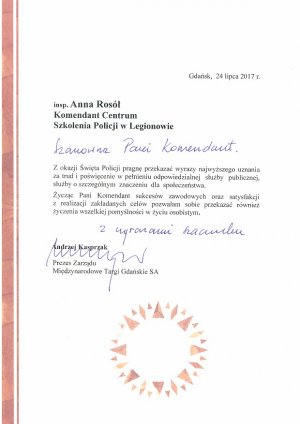 Gdańsk, 24 lipca 2017 r.
insp. Anna Rosół
Komendant Centrum
Szkolenia Policji w Legionowie
Szanowna Pani Komendant.
Z okazji Święta Policji pragnę przekazać wyrazy najwyższego uznania
za trud i poświęcenie w pełnieniu odpowiedzialnej służby publicznej,
służby o szczególnym znaczeniu dla społeczeństwa.
Życząc Pani Komendant sukcesów zawodowych oraz satysfakcji
z realizacji zakładanych celów pozwalam sobie przekazać również
życzenia wszelkiej pomyślności w życiu osobistym.
z wyrazami szacunku
Andrzej Kasprzak
Prezes Zarządu
Międzynarodowe Targi Gdańskie SA